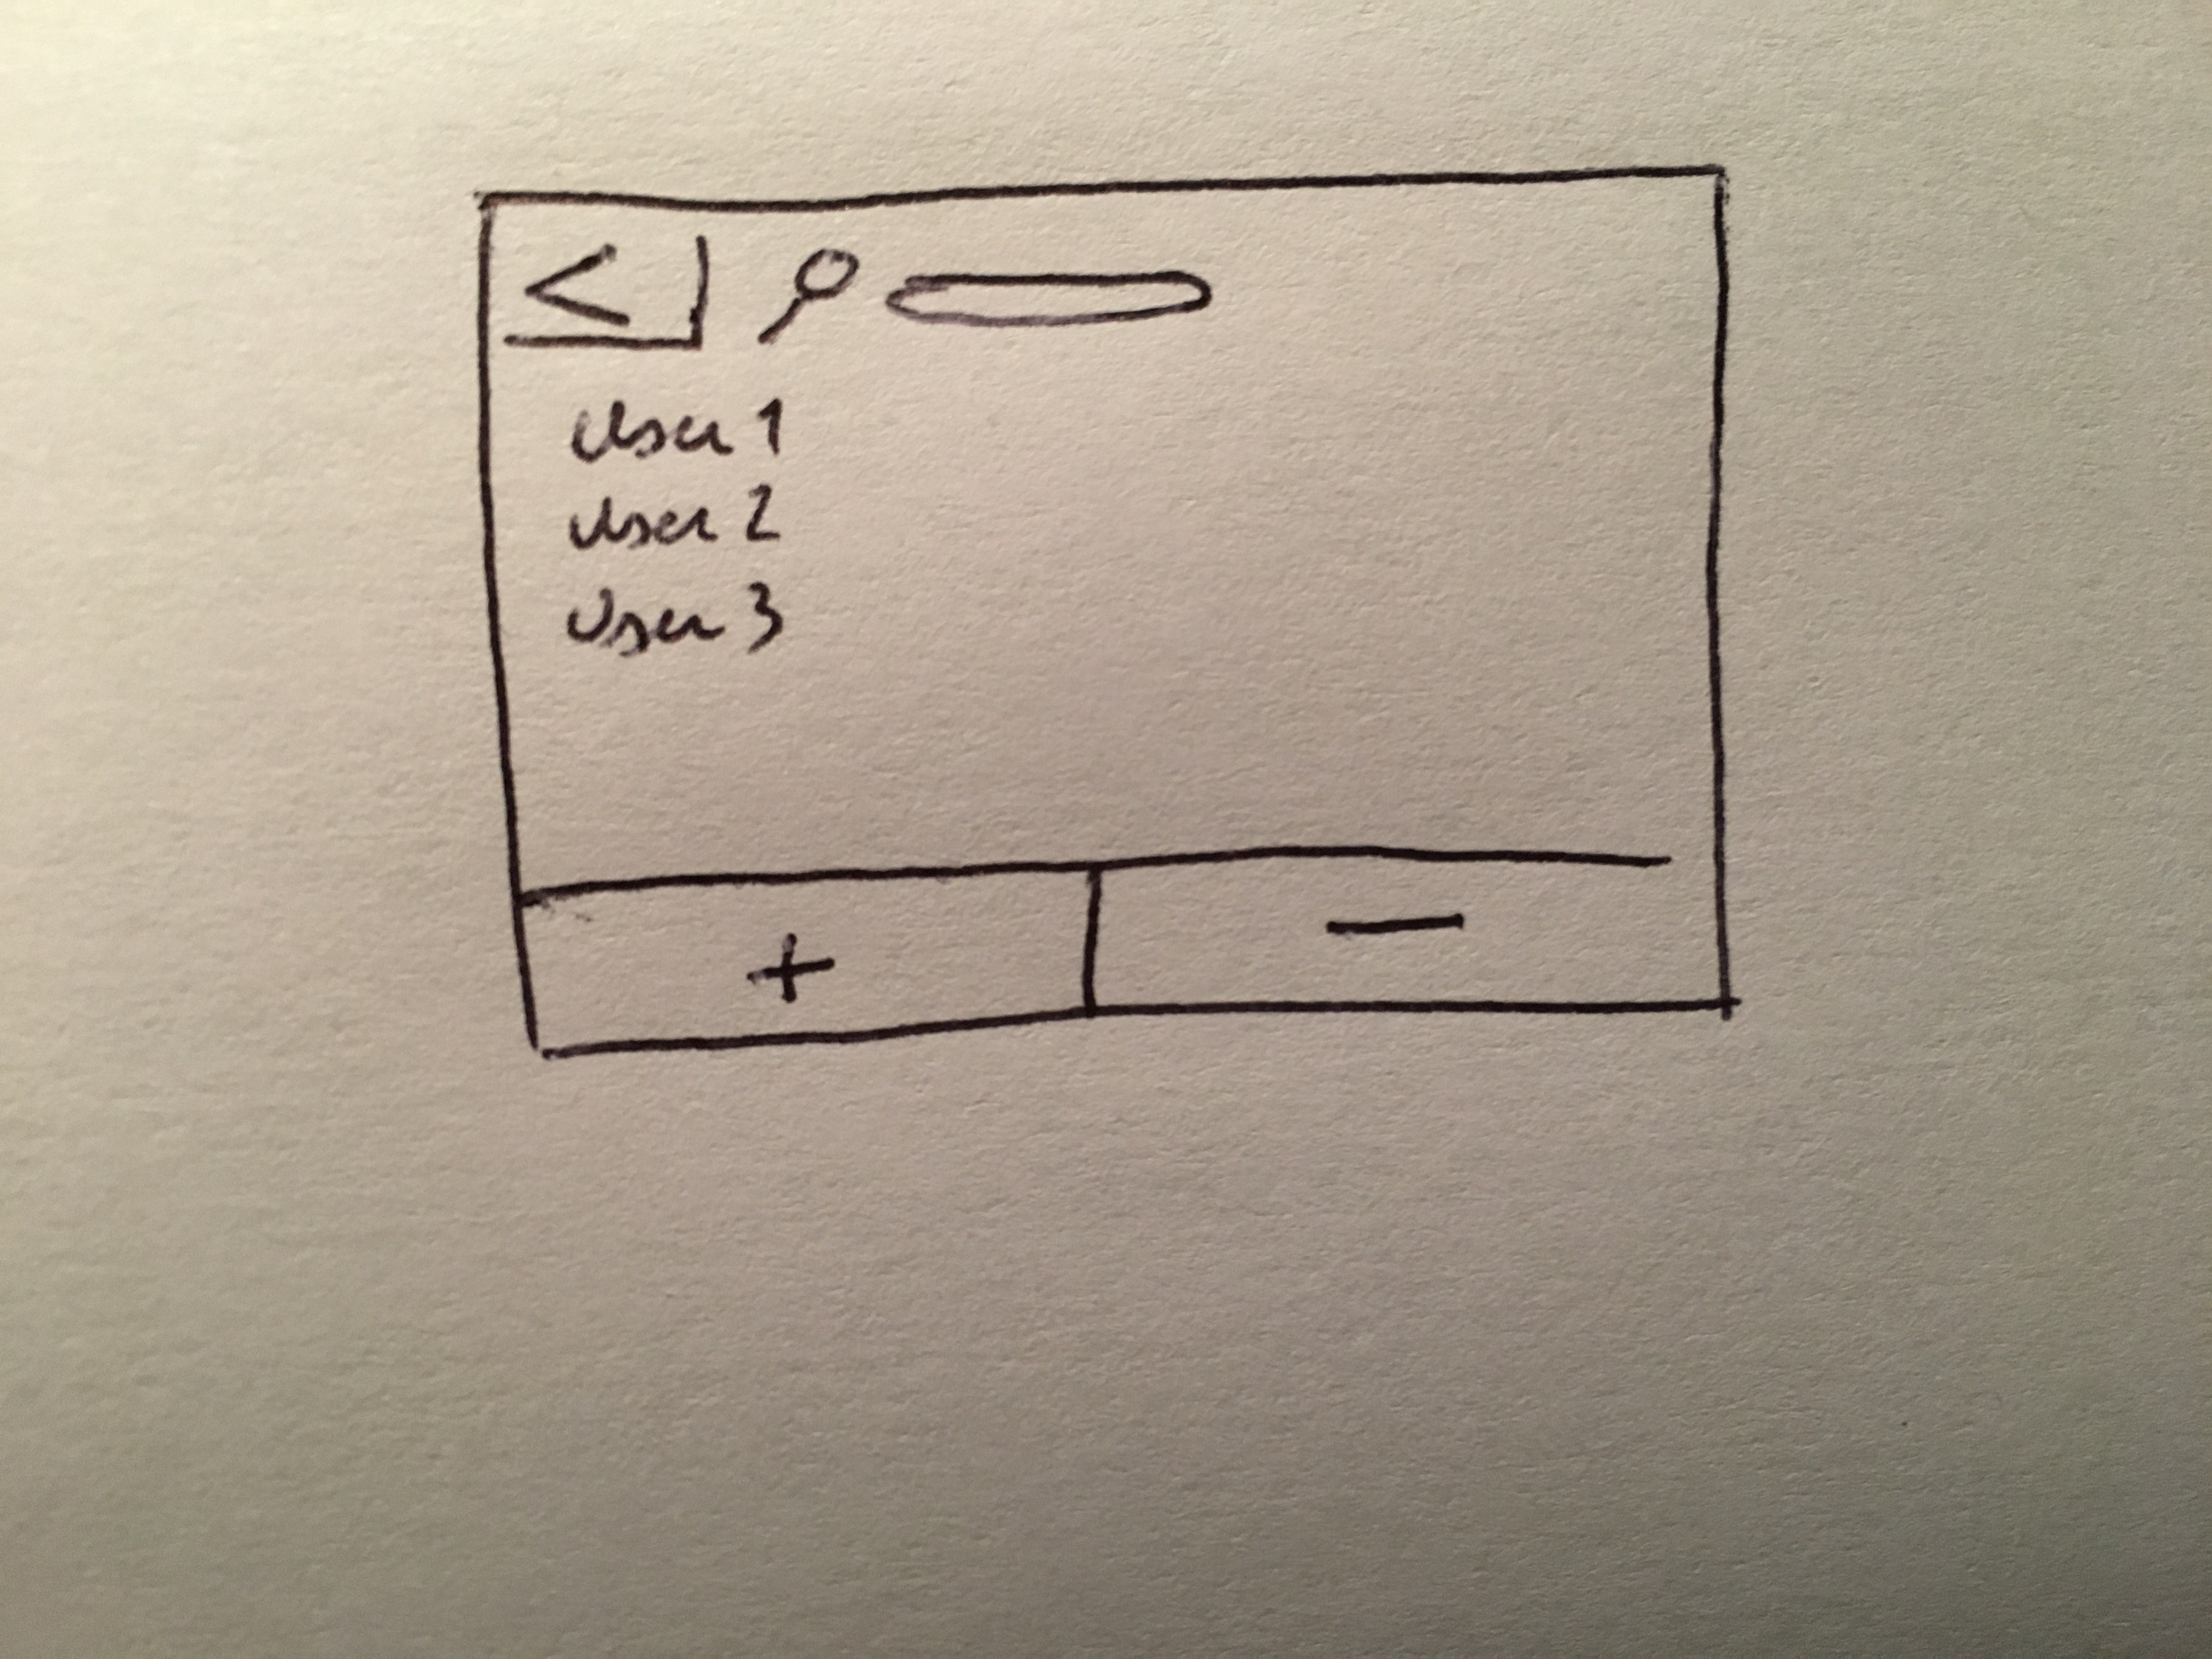 <
User 1
User 2
User 3
+ —